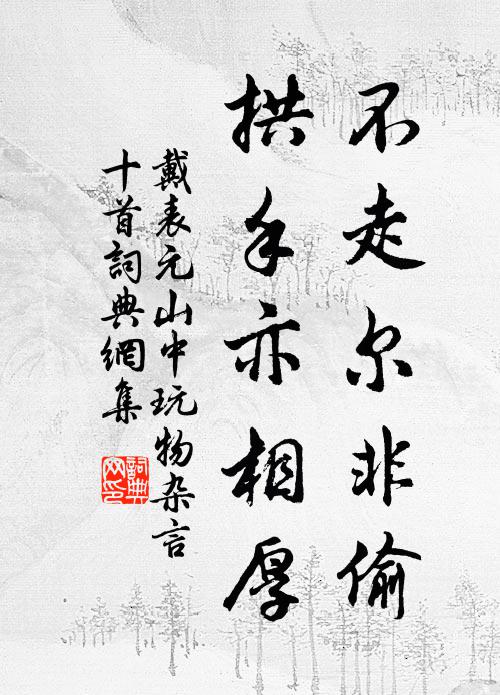 不走尔非偷
拱手亦相厚
戴表元山中玩物杂言
十首詞典網集
詞典
网印